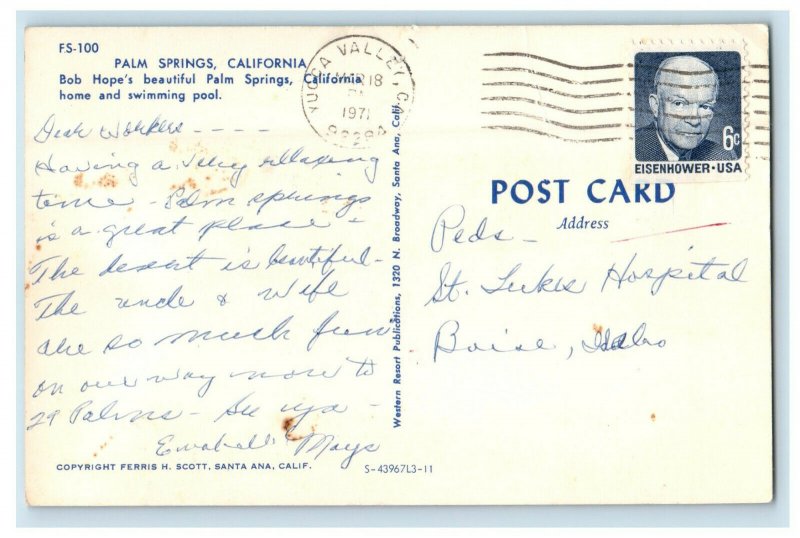 FS-100
PALM SPRINGS, CALIFORNIA
Bob Hope's beautiful Palm Springs, California
home and swimming pool.
Dear Workers ----
Having a very relaxing
time - Palm springs
is a great place -
The desert is beautiful -
The uncle & wife
are so much fun
on our way now to
29 Palms - See ya -
Mays
COPYRIGHT FERRIS H. SCOTT, SANTA ANA, CALIF.
S-43967L3-11
Western Resort Publications, 1320 N. Broadway, Santa Ana, Calif.
YUCCA VALLEY, CA
MAR 18
1971
92284
6c
EISENHOWER·USA
POST CARD
Address
Peds -
St. Lukes Hospital
Boise, Idaho